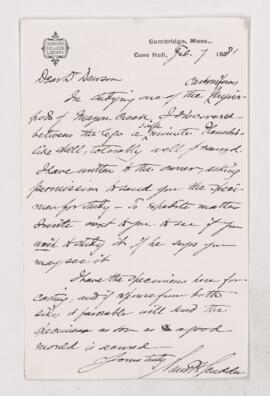 HARVARD COLLEGE LIBRARY
Cambridge, Mass.,
Gore Hall, Feb. 7 1881
Dear Dr Dawson
Carboniferous
In studying one of the
of Mazon Creek, I discovered
between the legs a minute
like shell, tolerably well preserved.
I have written to the owner, asking
permission to send you the speci-
men for study – to expedite matters
I write next to you to see if you
wish to study it, if he says you
may see it.
I have the specimens here for
casting, and if
is favorable will send the
specimens as soon as a good
mould is secured
Yours truly
Sam. H. Scudder